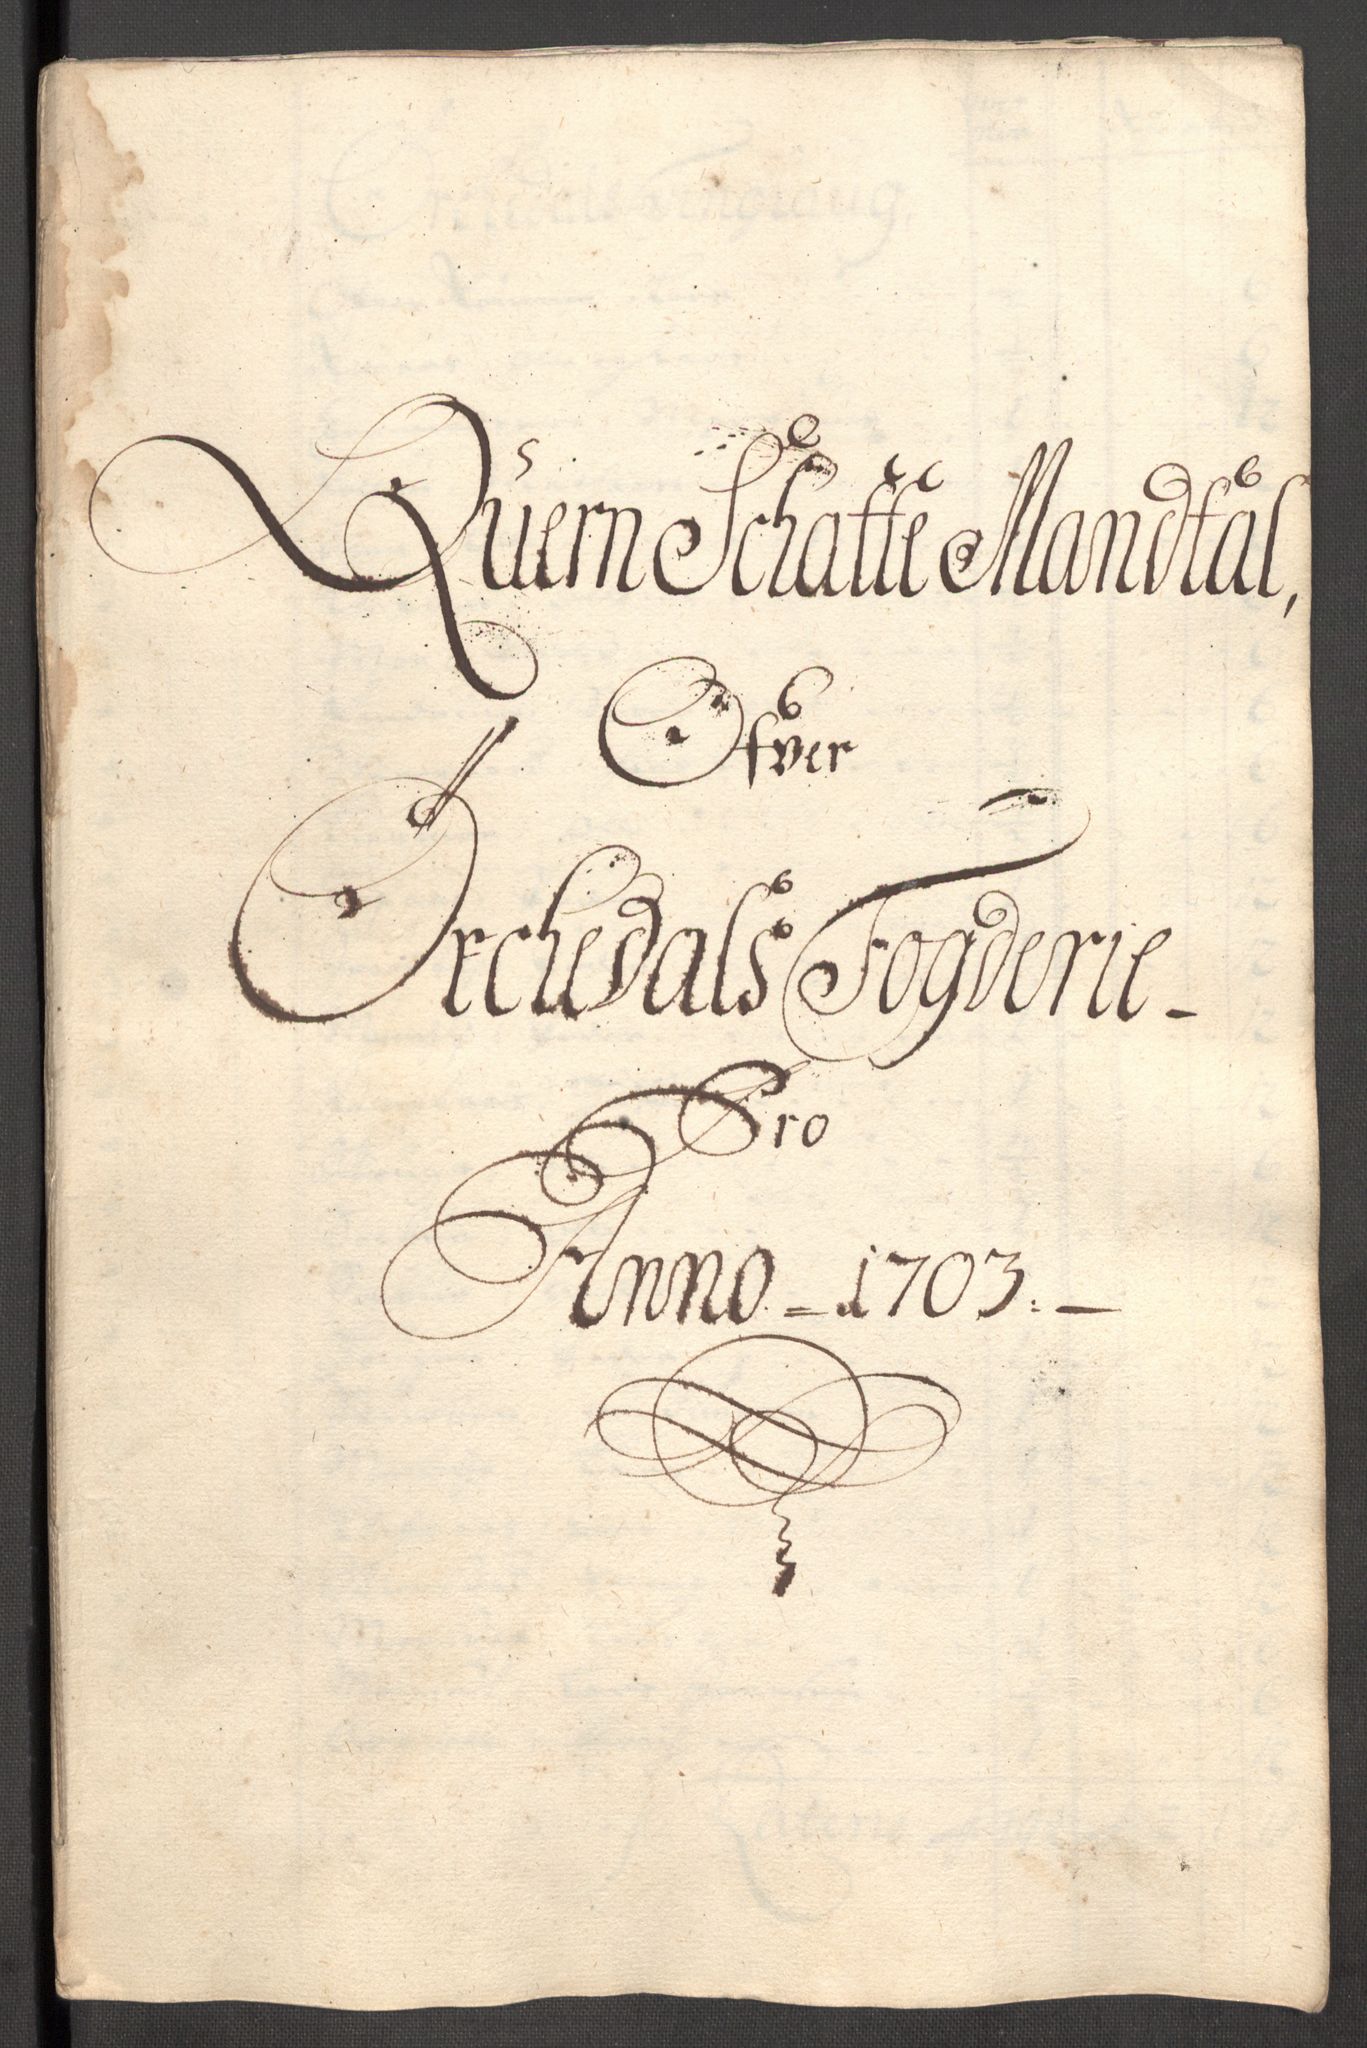 Quern Schatte Mandtal,
Ofver
Orchedals Fogderie -
Pro
Anno - 1703. -